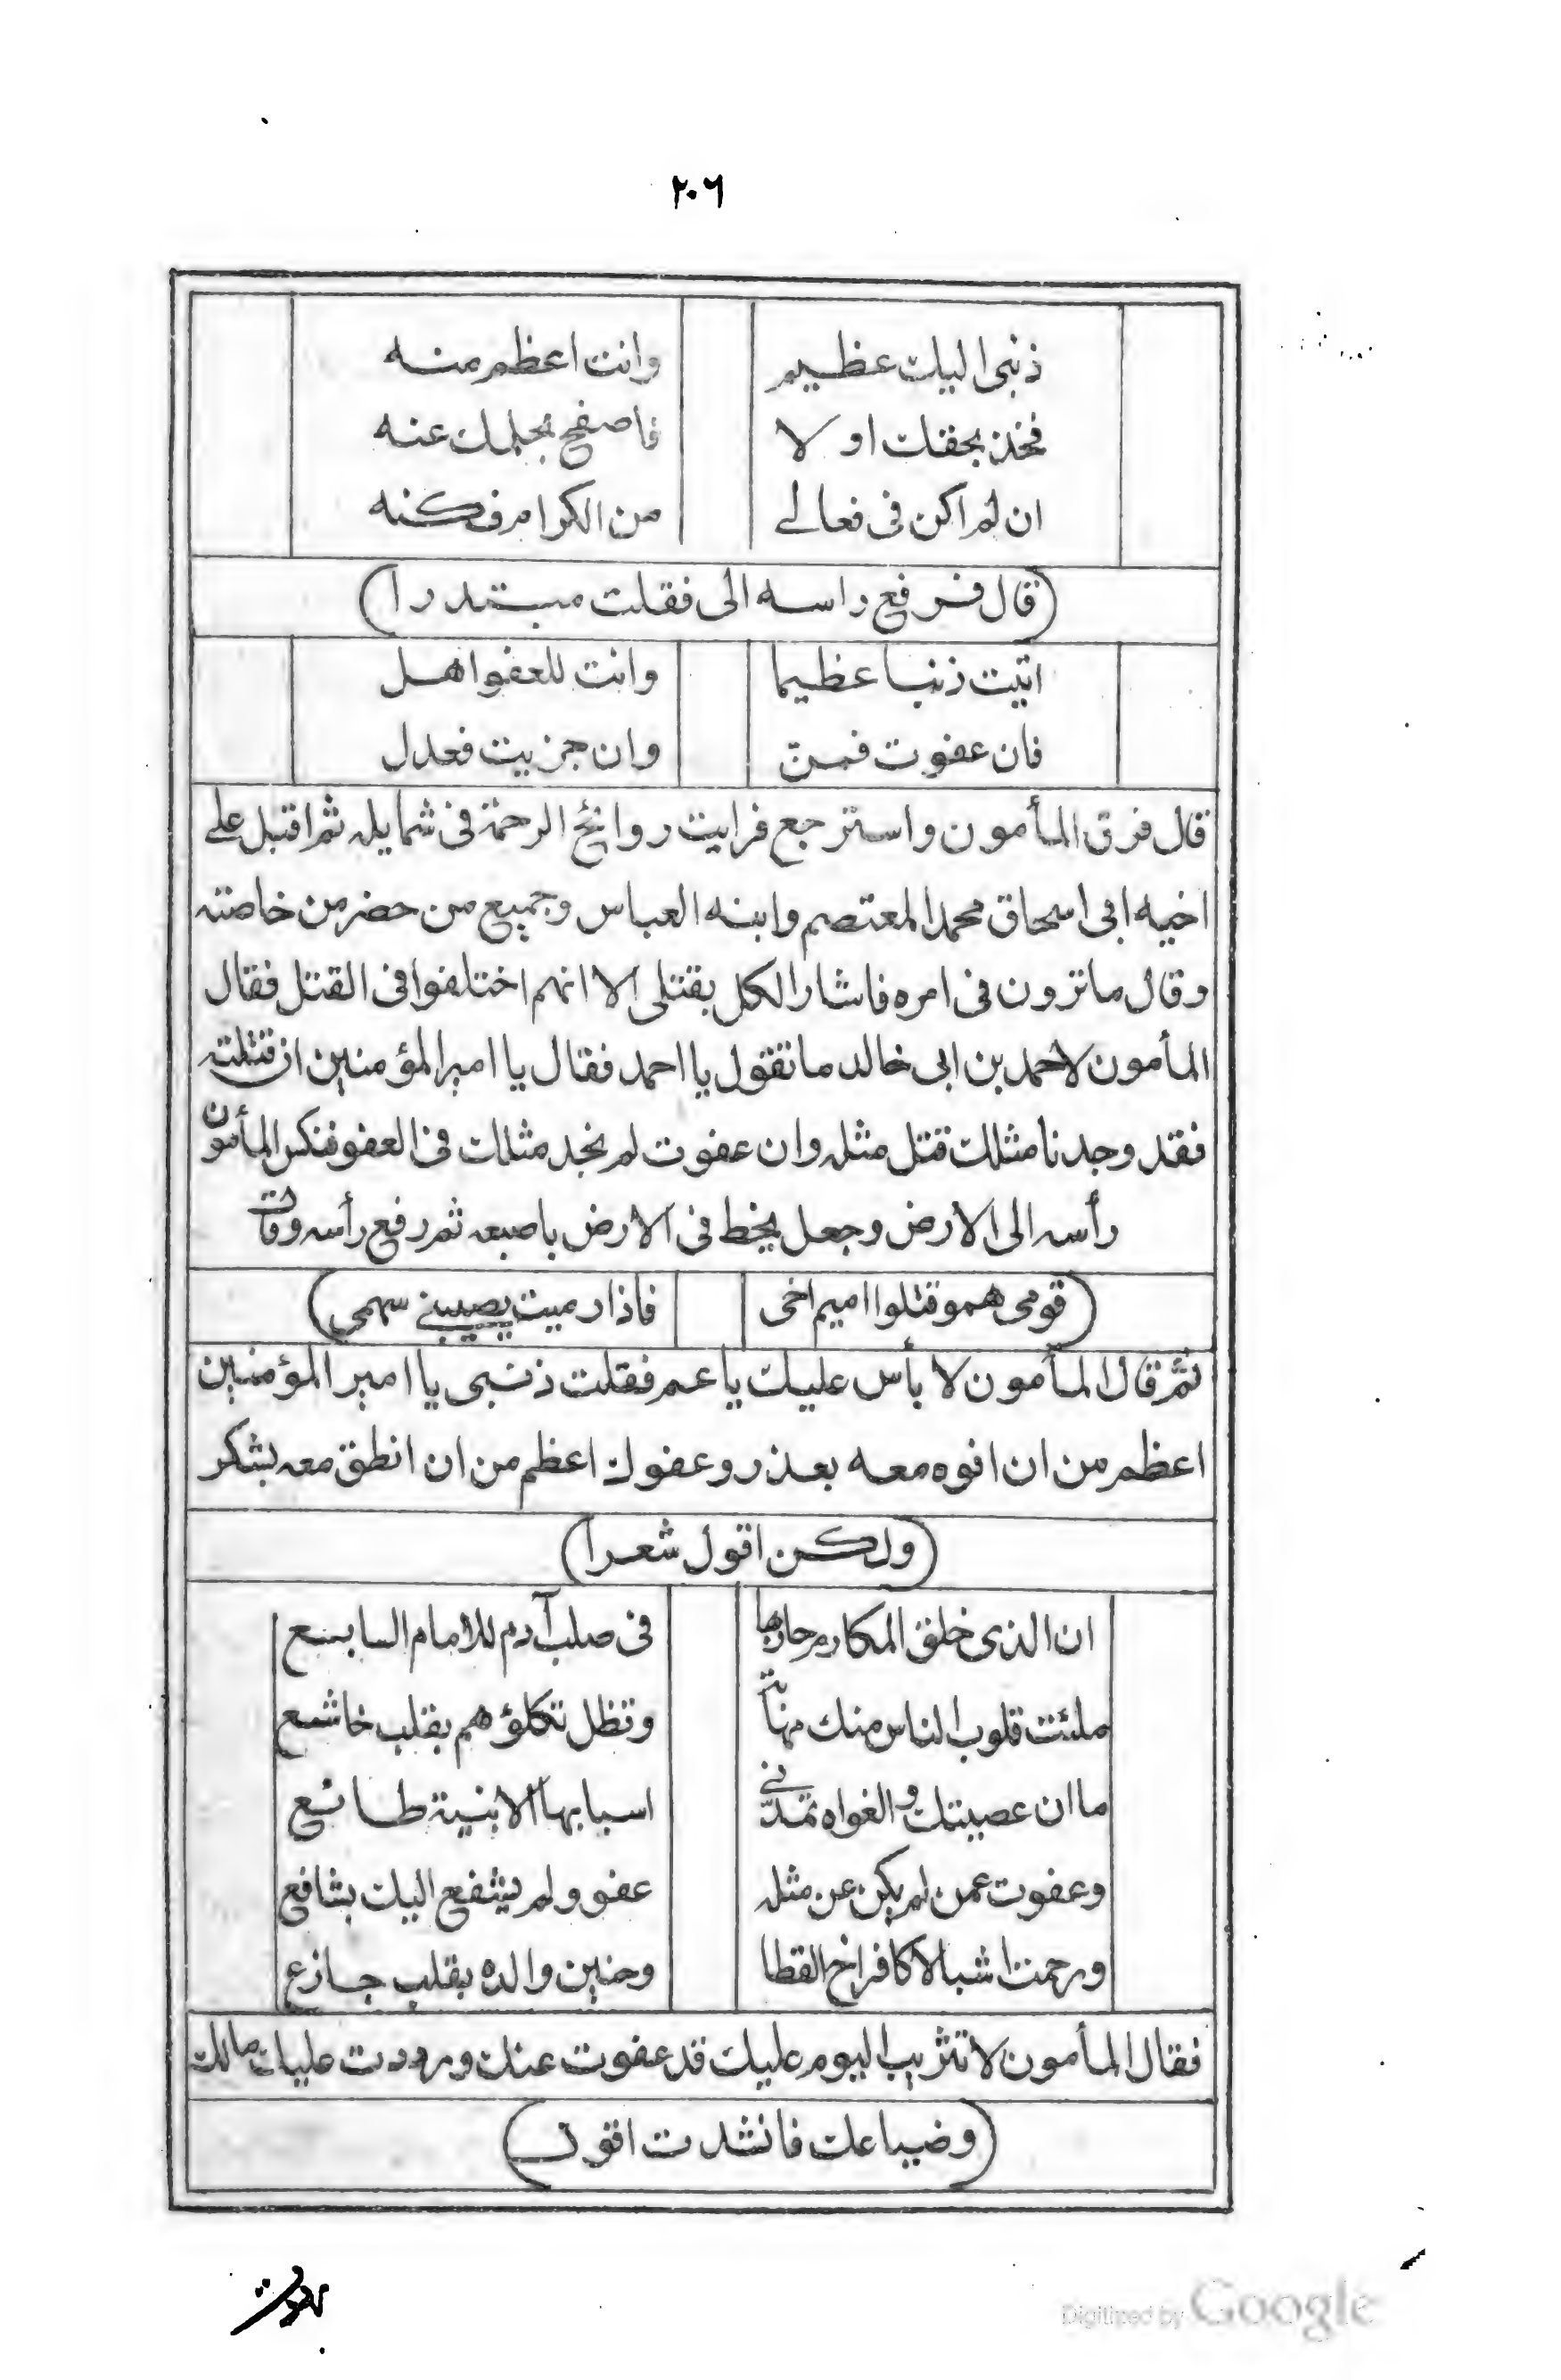 ٢٠٦
ذنبى اليك عظيم وانت اعظم منه
فخذ بحقك او لا فاصفح بحلمك عنه
ان لم اكن فى فعالے من الكرام فكنه
(قال فرفع راسه الى فقلت مبتدرا)
اتيت ذنبا عظيما وانت للعفو اهل
فان عفوت فمنّ وان جزيت فعدل
قال فرق المأمون واسترجع فرايت روائح الرحمة فى شمايله ثم اقبل علے
اخيه ابى اسحاق محمد المعتصم وابنه العباس وجميع من حضر من خاصته
وقال ما ترون فى امره فاشار الكل بقتلى الا انهم اختلفوا فى القتل فقال
المأمون لاحمد بن ابى خالد ما تقول يا احمد فقال يا امير المؤمنين ان قتلته
فقد وجدنا مثلك قتل مثله وان عفوت لم نجد مثلك فى العفو فنكس المأمون
رأسه الى الارض وجعل يخط فى الارض باصبعه ثم رفع رأسه وقال
(قومى همو قتلوا اميم اخى فاذا رميت يصيبنے سهمى)
ثمّ قال المأمون لا بأس عليك يا عم فقلت ذنبى يا امير المؤمنين
اعظم من ان افوه معه بعذر وعفوك اعظم من ان انطق معه بشكر
(ولكن اقول شعرا)
ان الذى خلق المكارم حازها فى صلب آدم للامام السابع
ملئت قلوب الناس منك مهابة وتظل تكلؤهم بقلب خاشع
ما ان عصيتك والغواه تمدّنے اسبابها الا بنية طائع
وعفوت عمن لم يكن عن مثله عفو ولم يشفع اليك بشافع
ورحمت اشبالا كافراخ القطا وحنين والده بقلب جازع
فقال المأمون لا تثريب اليوم عليك قد عفوت عنك ورددت عليك مالك
(وضياعك فانشدت اقول)
رددت
Digitized by Google